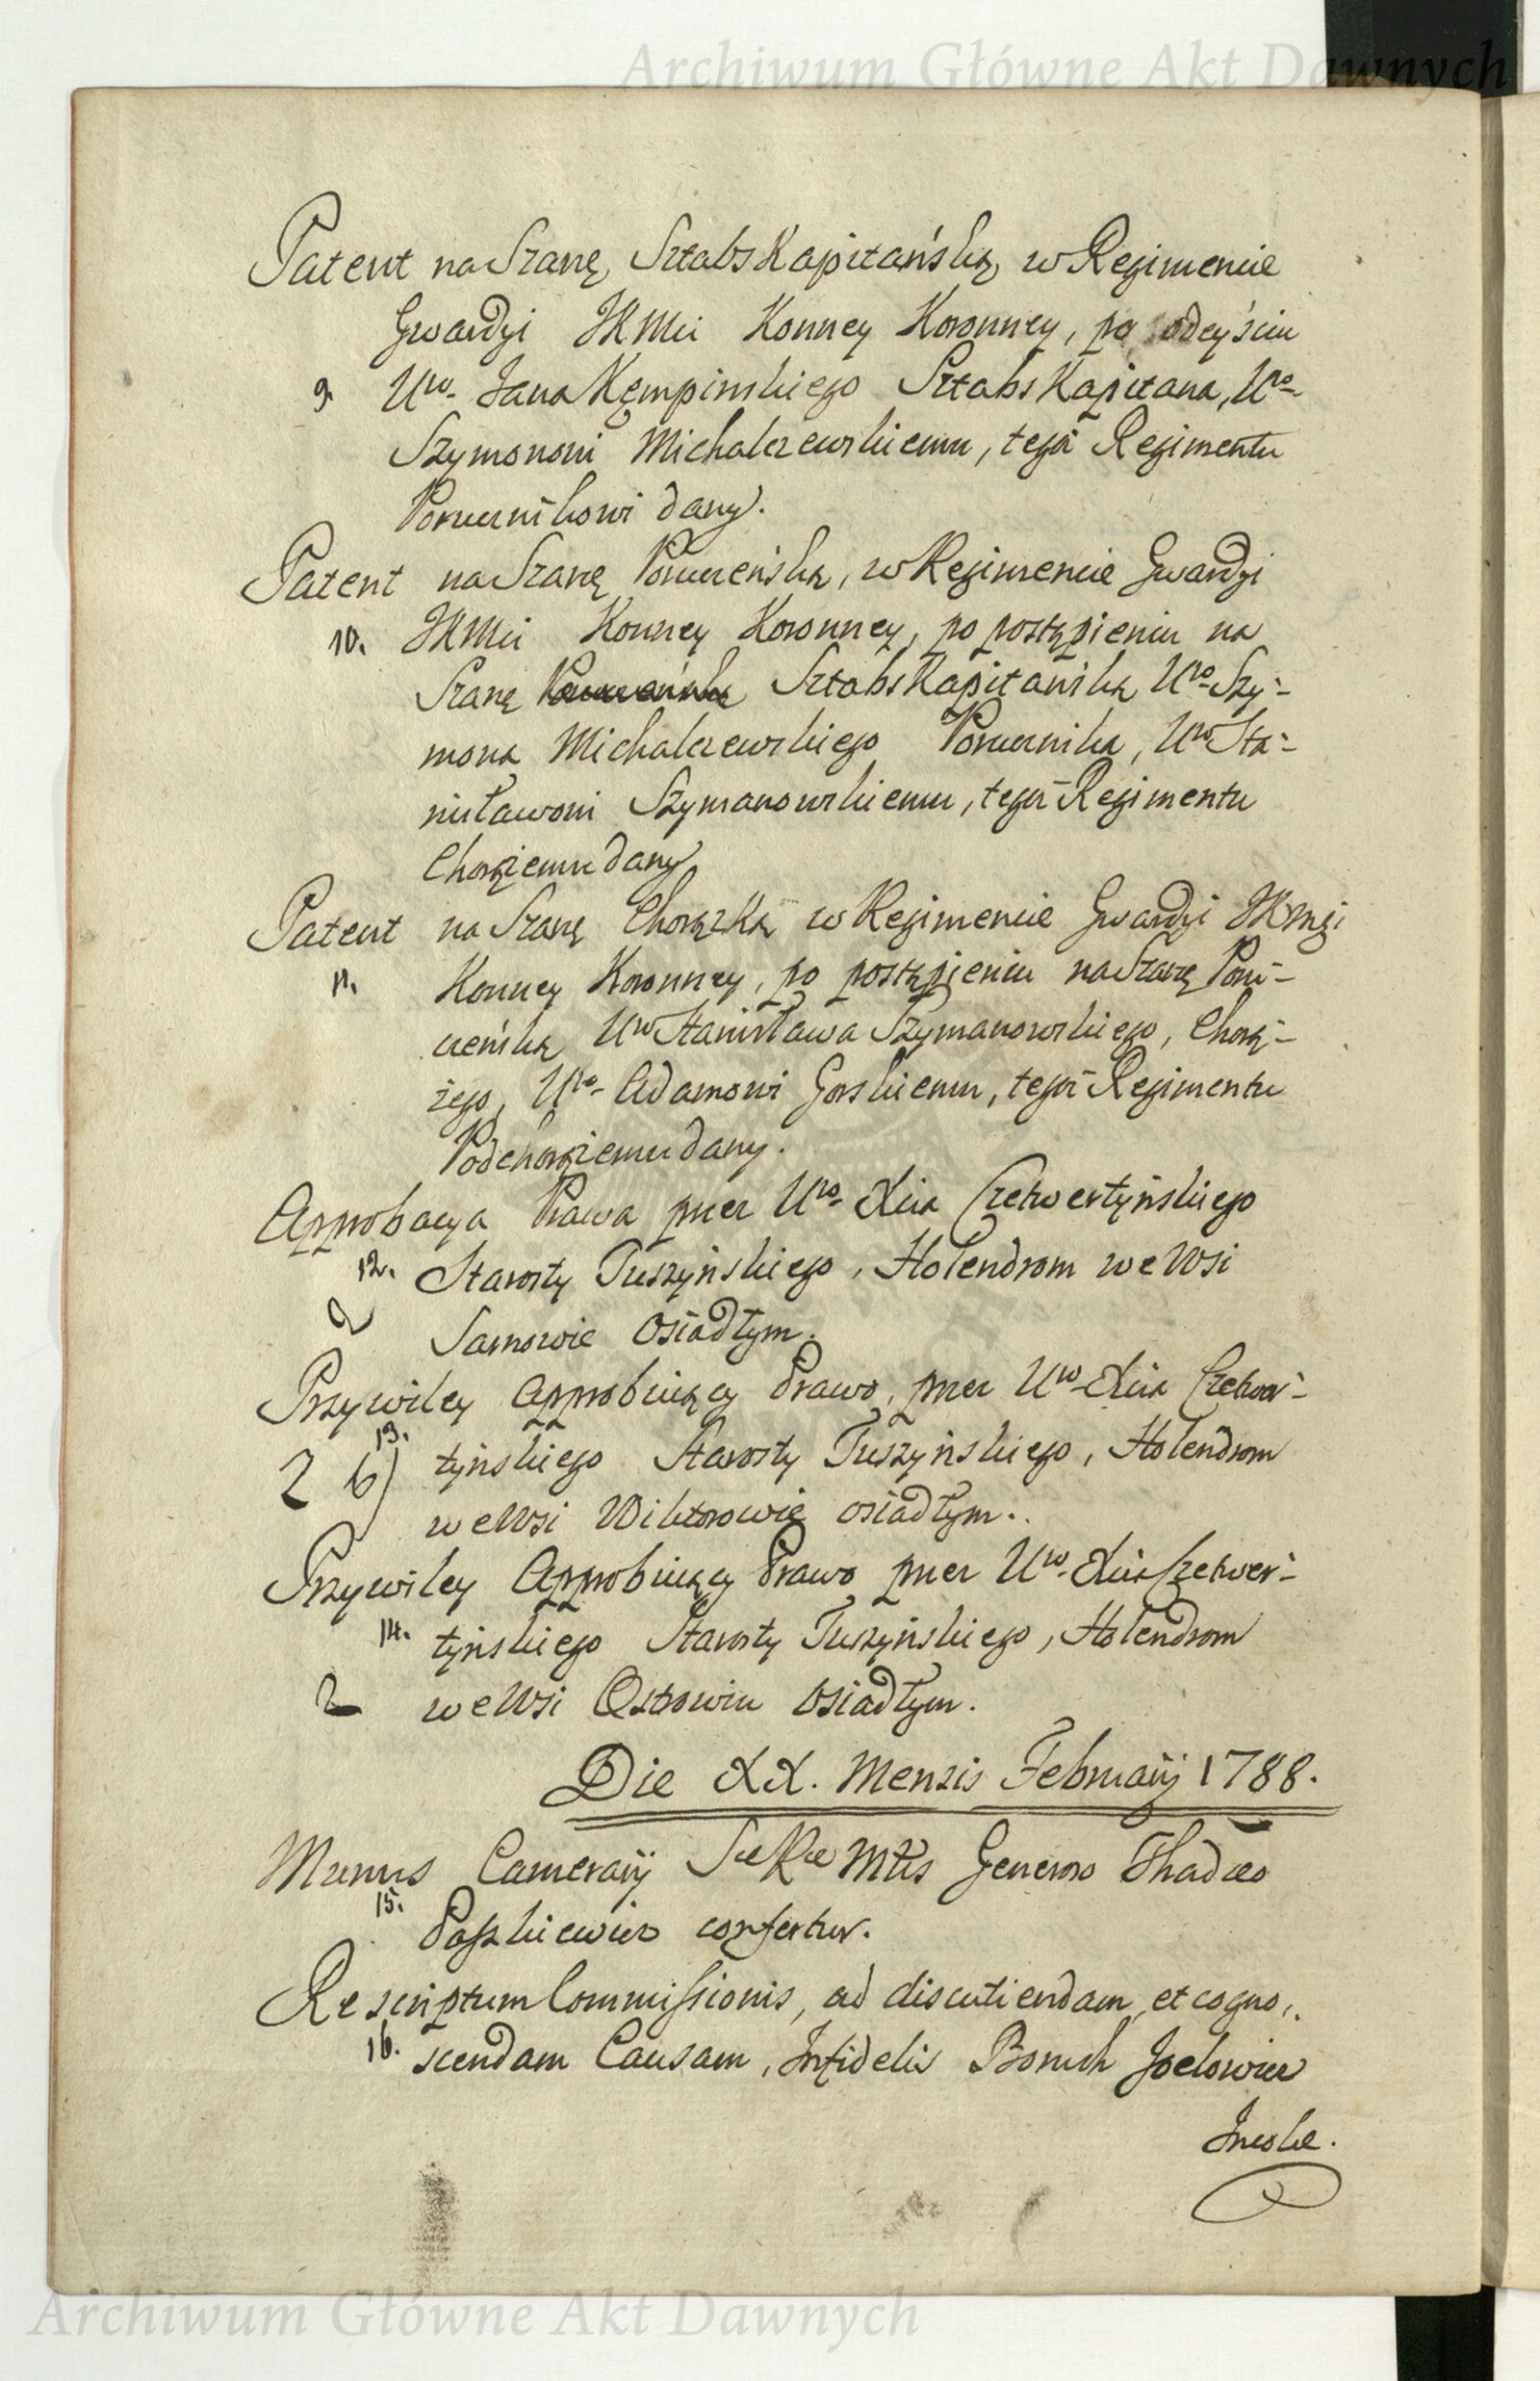 Archiwum Główne Akt Dawnych
Patent na Szarżę SztabsKapitańską w Regimencie
Gwardyi JKMci Konney Koronney, po odeyściu
9. Uro- Jana Kęmpinskiego SztabsKapitana, Uro-
Szymonowi Michalczewskiemu, tegoż Regimentu
Porucznikowi dany.
Patent na Szarżę Poruczeńską, w Regimencie Gwardyi
10. JKMci Konney Koronney, po postąpieniu na
Szarżę SztabsKapitańską Uro- Szy-
mona Michalczewskiego Porucznika, Uro Sta-
nisławowi Szymanowskiemu, tegoż Regimentu
Chorążemu dany
Patent na Szarżę Chorązką w Regimencie Gwardyi JKMci
11. Konney Koronney, po postąpieniu na Szarżę Poru-
czeńską Uro Stanisława Szymanowskiego, Chorą-
żego, Uro- Adamowi Gorskiemu, tegoż Regimentu
Podchorążemu dany.
Approbacya Prawa przez Uro- Xcia Czetwertyńskiego
12. Starosty Tuszyńskiego, Holendrom we Wsi
2 Sarnowie Osiadłym.
Przywiley Approbuiący Prawo, przez Uro- Xcia Czetwer-
13.
2 b) tyńskiego Starosty Tuszyńskiego, Holendrom
we Wsi Wiktorowie osiadłym..
Przywiley Approbuiący Prawo przez Uro- Xcia Czetwer-
14. tyńskiego Starosty Tuszyńskiego, Holendrom
2 we Wsi Ostrowiu Osiadłym.
Die XX. Mensis Februarij 1788.
Munus Camerarij SæRæMtis Generoso Thadæo
15.
Paszkiewicz confertur.
Rescriptum Commissionis, ad discutiendam, et cogno,.
16. scendam Causam, Infidelis Boruch Joelowicz
Incolæ.
Archiwum Główne Akt Dawnych